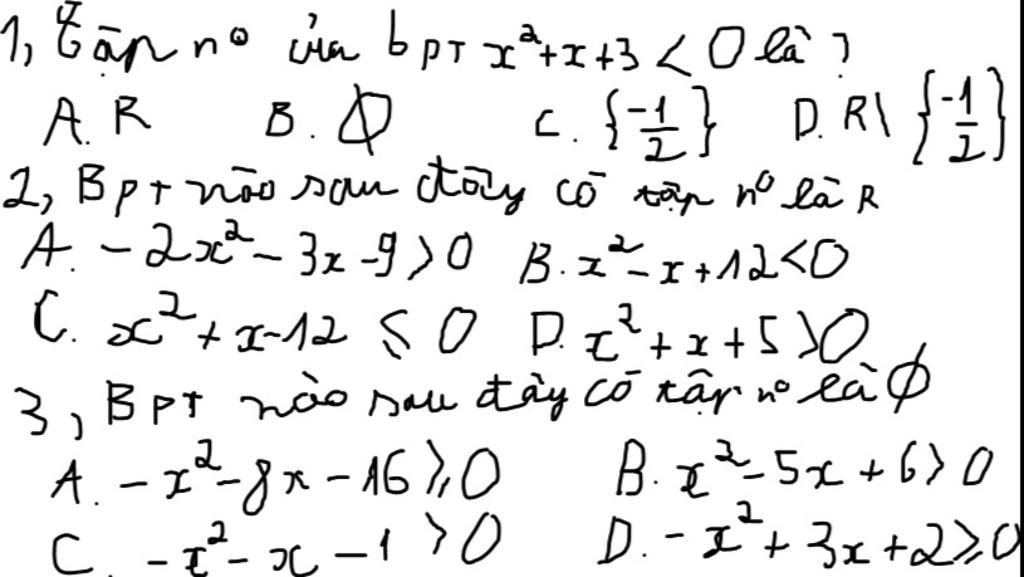 1, Tập n° của bpt x²+x+3 < 0 là ?
A. R B. ∅ C. {-1/2} D. R\ {-1/2}
2, Bpt nào sau đây có tập n° là R
A. -2x²- 3x -9 > 0 B. x²-x+12<0
C. x²+x-12 ≤ 0 D. x²+x+5>0
3, Bpt nào sau đây có tập n° là ∅
A. -x²-8x-16 ≥ 0 B. x²-5x+6> 0
C. -x²-x-1 > 0 D. -x²+3x+2≥0